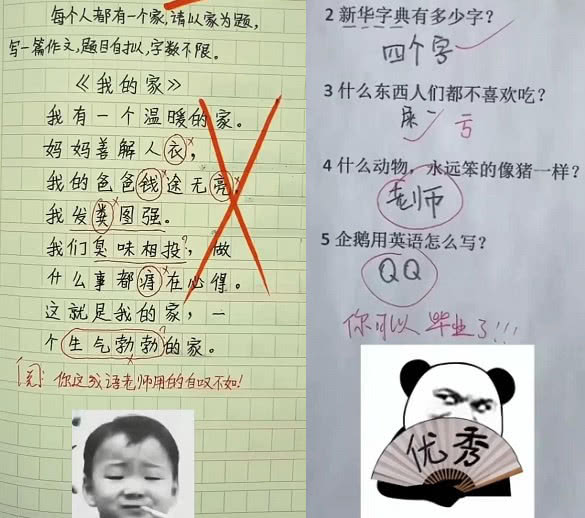 每个人都有一个家,请以家为题,
写一篇作文,题目自拟,字数不限。
《我的家》
我有一个温暖的家。
妈妈善解人衣,
我的爸爸钱途无亮,
我发粪图强。
我们臭味相投,做
什么事都痔在必得。
这就是我的家,一
个生气勃勃的家。
你这成语老师用的自叹不如!
2 新华字典有多少字?
四个字
3 什么东西人们都不喜欢吃?
屎
亏
4 什么动物,永远笨的像猪一样?
老师
5 企鹅用英语怎么写?
QQ
你可以毕业了!!!
优秀